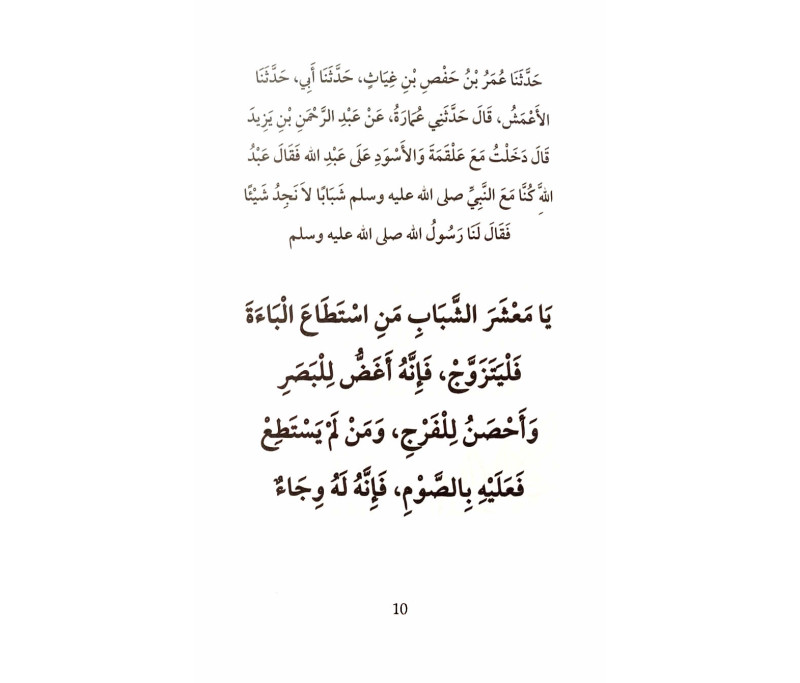 حَدَّثَنَا عُمَرُ بْنُ حَفْصِ بْنِ غِيَاثٍ، حَدَّثَنَا أَبِي، حَدَّثَنَا
الأَعْمَشُ، قَالَ حَدَّثَنِي عُمَارَةُ، عَنْ عَبْدِ الرَّحْمَنِ بْنِ يَزِيدَ
قَالَ دَخَلْتُ مَعَ عَلْقَمَةَ وَالأَسْوَدِ عَلَى عَبْدِ الله فَقَالَ عَبْدُ
اللهَِّ كُنَّا مَعَ النَّبِيِّ صلى الله عليه وسلم شَبَابًا لاَ نَجِدُ شَيْئًا
فَقَالَ لَنَا رَسُولُ الله صلى الله عليه وسلم
يَا مَعْشَرَ الشَّبَابِ مَنِ اسْتَطَاعَ الْبَاءَةَ
فَلْيَتَزَوَّجْ، فَإِنَّهُ أَغَضُّ لِلْبَصَرِ
وَأَحْصَنُ لِلْفَرْجِ، وَمَنْ لَمْ يَسْتَطِعْ
فَعَلَيْهِ بِالصَّوْمِ، فَإِنَّهُ لَهُ وِجَاءٌ
10